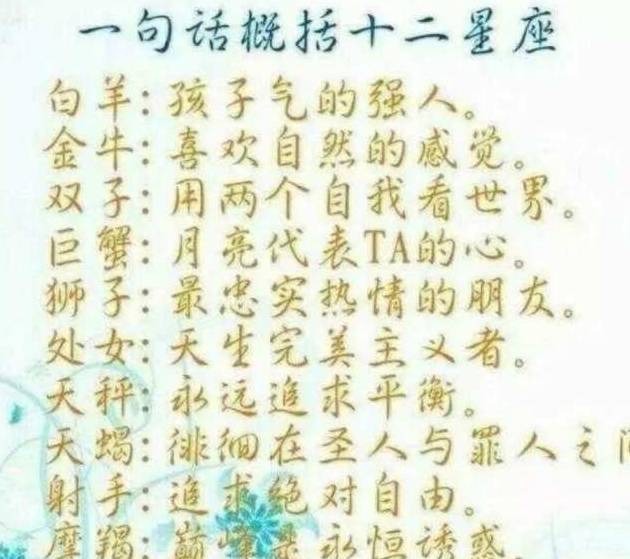 一句话概括十二星座
白羊：孩子气的强人。
金牛：喜欢自然的感觉。
双子：用两个自我看世界。
巨蟹：月亮代表TA的心。
狮子：最忠实热情的朋友。
处女：天生完美主义者。
天秤：永远追求平衡。
天蝎：徘徊在圣人与罪人之间
射手：追求绝对自由。
摩羯：巅峰是永恒诱惑